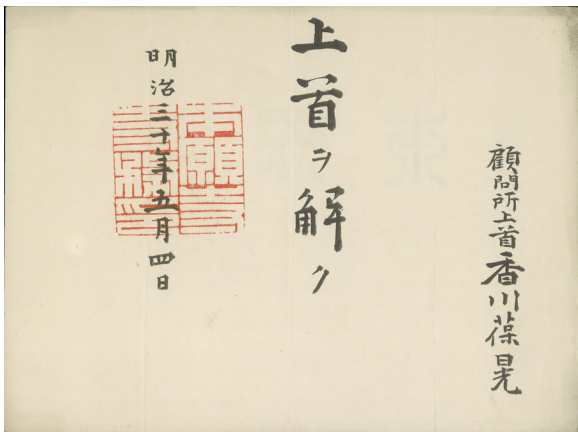 顧問所上首香川葆晃
上首ヲ解ク
明治三十年五月四日